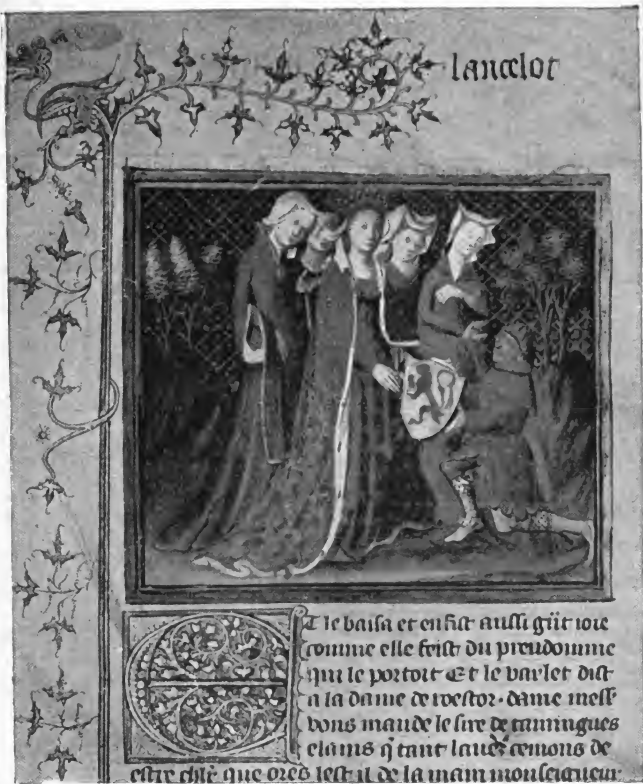 lancelot
Et le baisa et en fist aussi grāt ioie
comme elle feist du preudomme
qui le portoit Et le varlet dist
a la dame de roestor. dame mess
vous mande le sire de
elams q̄ tant laues de
estre chlr̄ que ores lest il de la main monseigneur